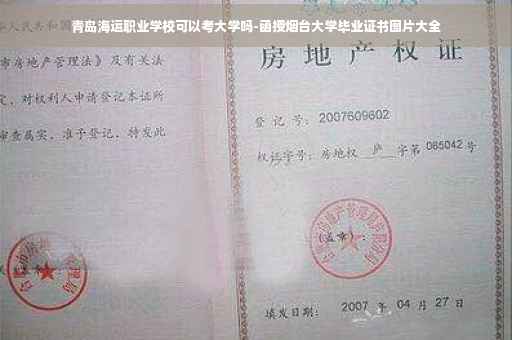 青岛海运职业学校可以考大学吗-函授烟台大学毕业证书图片大全
人民共和国
市房地产管理法》及有关
定，对权利人申请登记本证所
审查属实，准予登记，特发此
房地产权证
登记号：2007609602
权证字号：房地权 庐 字第 085042 号
(盖章)：
填发日期：2007 年 04 月 27 日